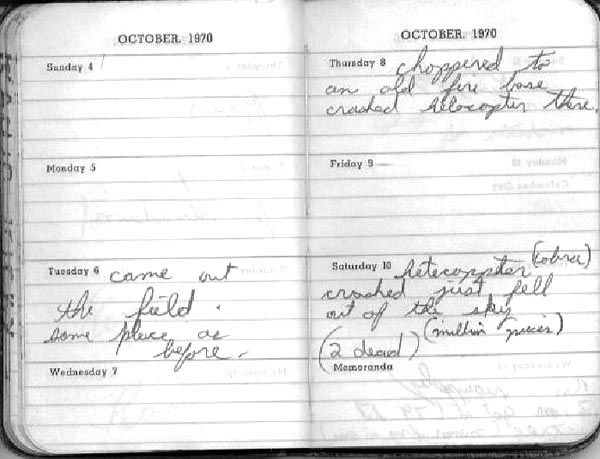 OCTOBER, 1970
Sunday 4
Monday 5
Tuesday 6 came out
the field.
same place as
before.
Wednesday 7
OCTOBER, 1970
Thursday 8 choppered to
an old fire base
crashed helocopter there.
Friday 9
Saturday 10 hetecoppter (cobra)
crashed just fell
out of the sky
(millin pieces)
(2 dead)
Memoranda